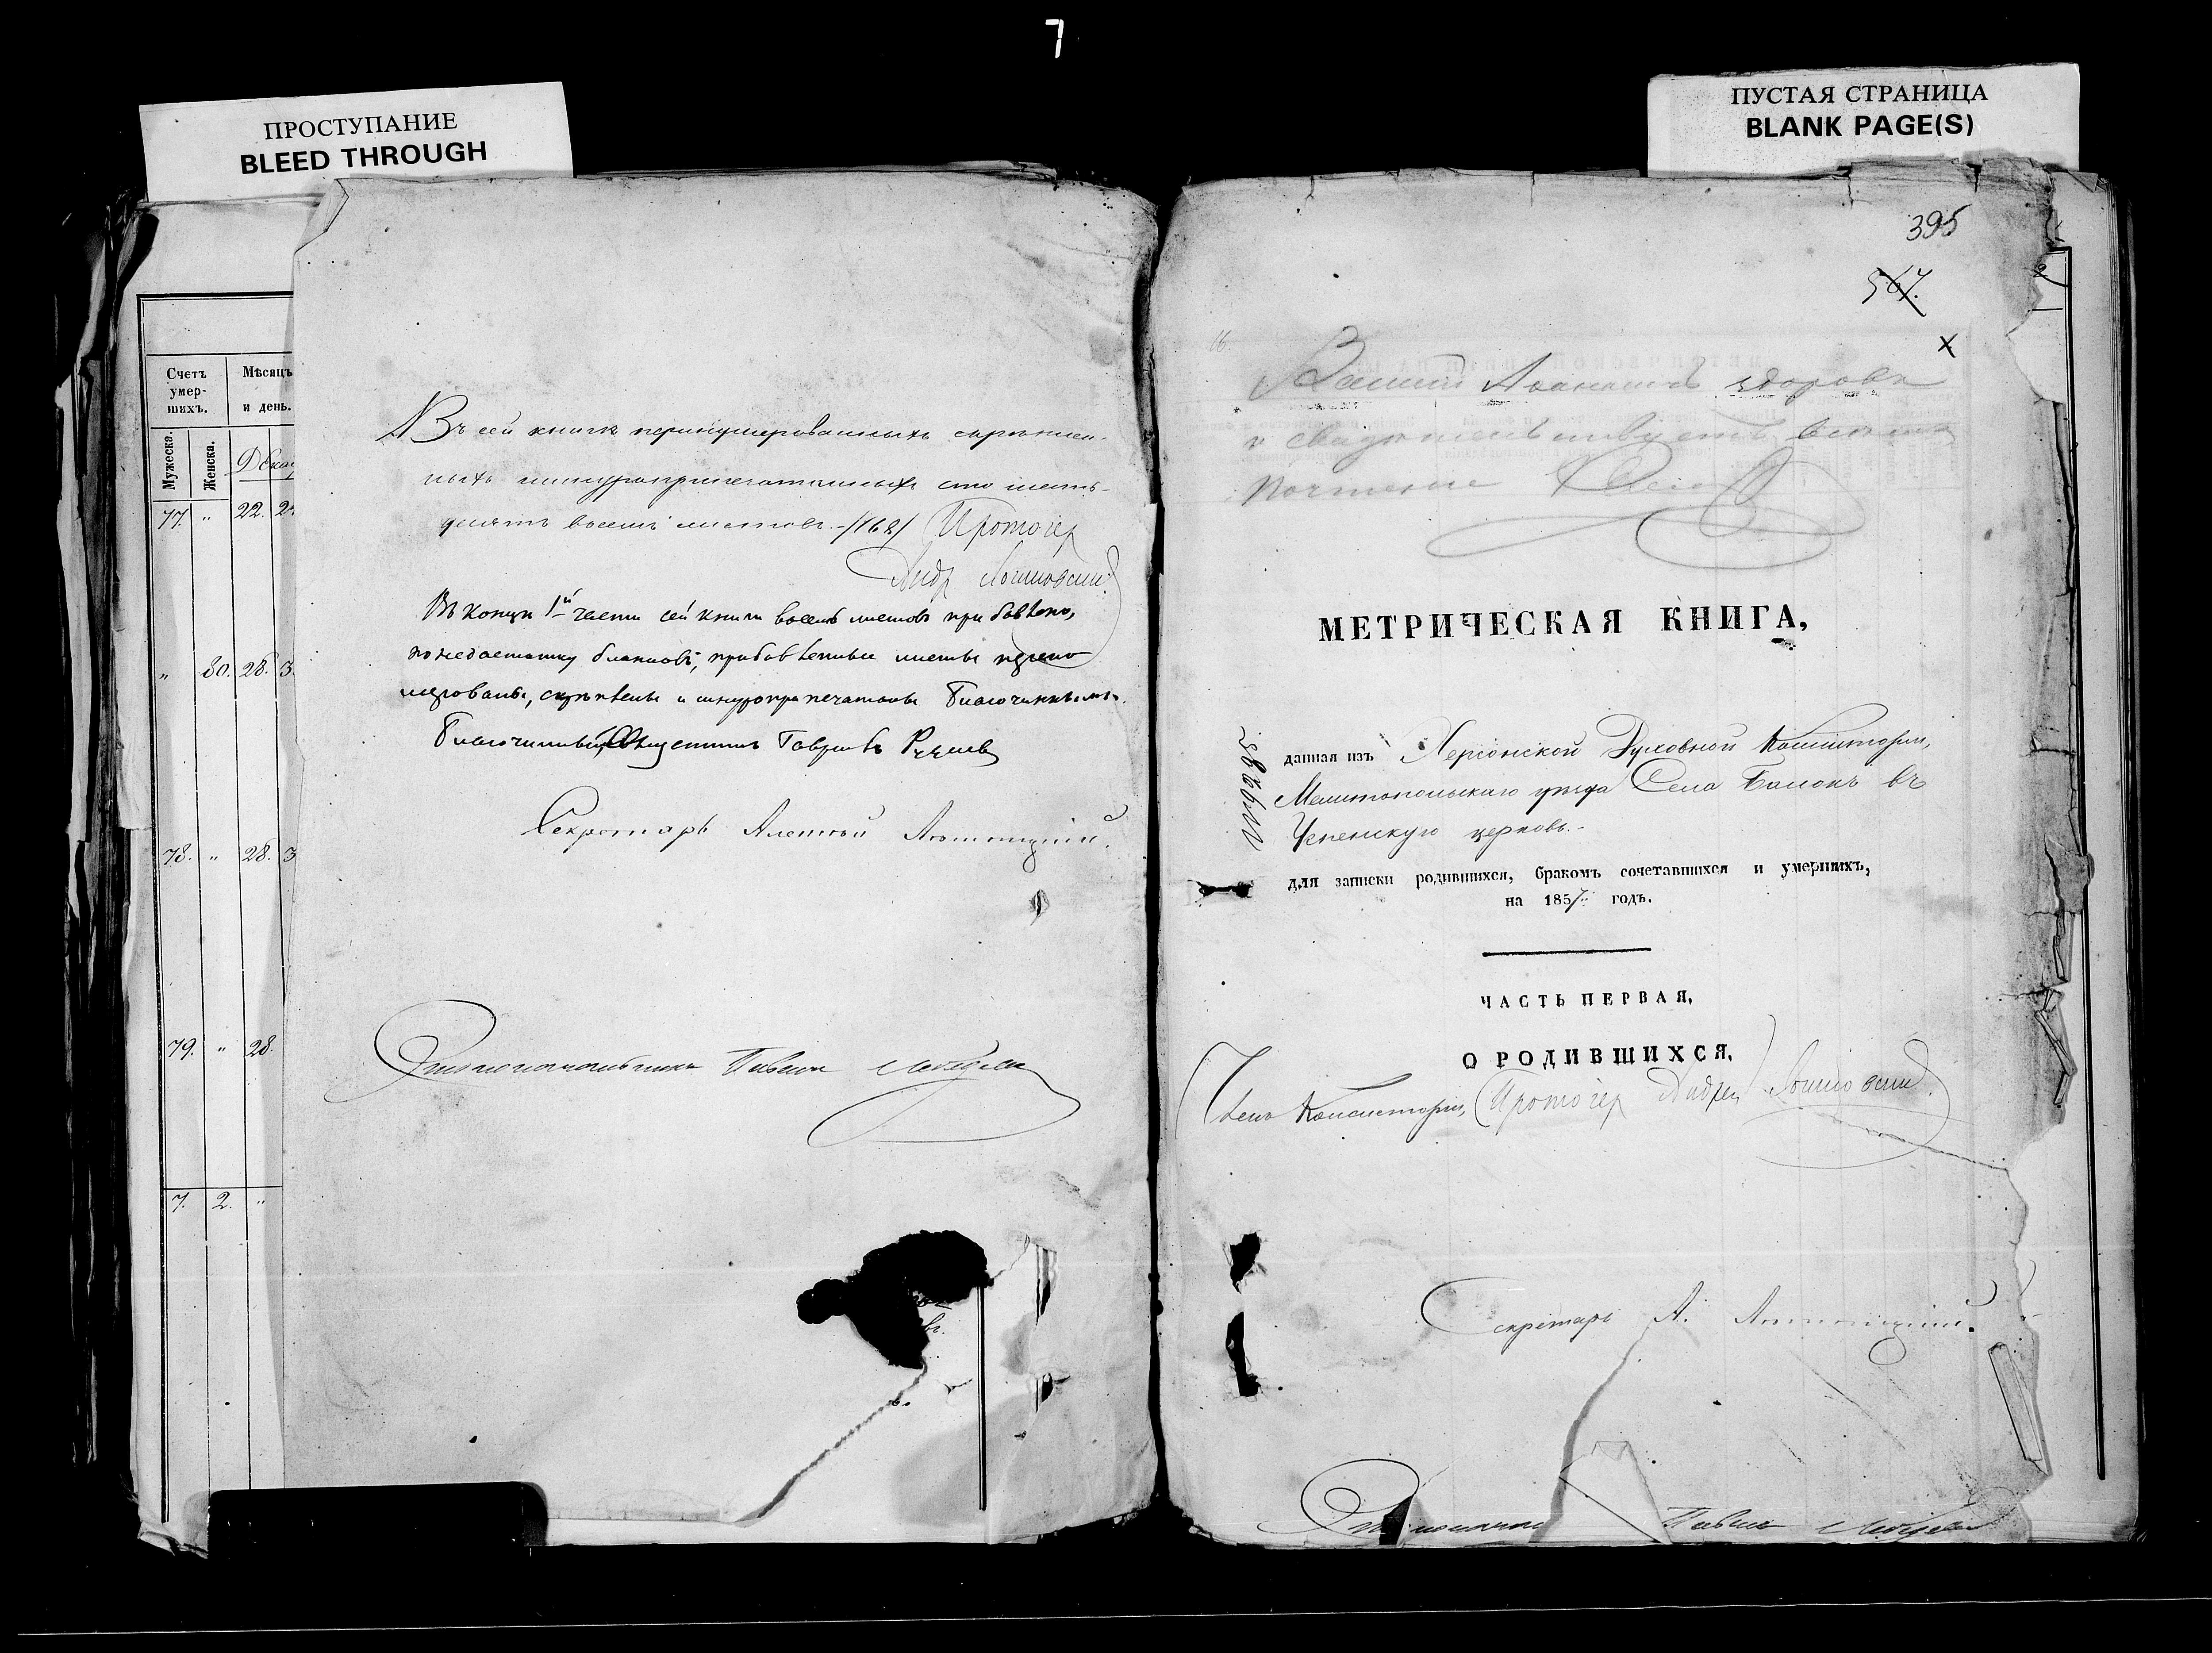 7
ПРОСТУПАНИЕ
BLEED THROUGH
ПУСТАЯ СТРАНИЦА
BLANK PAGE(S)
Счетъ умер-шихъ.
Мѣсяцъ и день.
Мужеска.
Женска.
77. " 22.
" 80. 28. 3
78. " 28. 3
79. " 28.
7. 2. "
Въ сей книгѣ перенумерованныхъ скрѣплен-
ныхъ шнуроприпечатанныхъ сто шесть-
десятъ восемь листовъ. /168/ Протоіер
Андр
Въ концѣ 1й части сей книги восемь листовъ прибавлено,
по недостатку бланковъ, прибавленные листы перену
мерованы, скрѣплены и шнуроприпечатаны Благочиннымъ.
Благочинный Священникъ Гавріилъ
Секретарь Алексѣй
Столоначальникъ Павелъ
395
567.
х
16.
здоровъ
и свидѣтельствуетъ
почтеніе
МЕТРИЧЕСКАЯ КНИГА,
данная изъ Херсонской Духовной Консисторіи,
Мелитопольскаго уѣзда Села Балокъ въ
Успенскую церковь.
для записки родившихся, бракомъ сочетавшихся и умершихъ,
на 1857 годъ.
ЧАСТЬ ПЕРВАЯ,
О РОДИВШИХСЯ.
Членъ Консисторіи, Протоіер Андрей
Секретарь А.
Павелъ